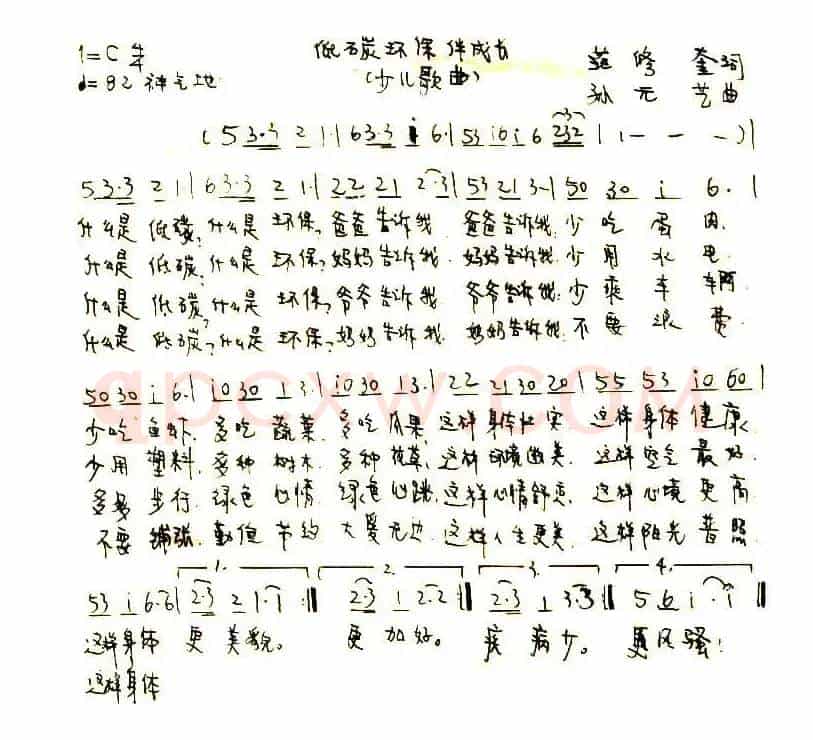 低碳环保伴成长
1=C 4/4
(少儿歌曲)
♩=82 神气地
范修奎词
孙元艺曲
(5 3·3 2 1·| 6 3·3 i 6·| 53 i0 i 6 232 | 1 - - -)|
5 3·3 2 1| 6 3·3 2 1·| 22 21 2·3| 53 21 3-| 50 30 i 6·|
什么是 低碳,什么是 环保,爸爸告诉我 爸爸告诉我:少 吃 蛋 肉.
什么是 低碳,什么是 环保,妈妈告诉我 妈妈告诉我:少 用 水 电.
什么是 低碳,什么是 环保,爷爷告诉我 爷爷告诉我:少 乘 车 辆.
什么是 低碳?什么是 环保,奶奶告诉我. 奶奶告诉我:不 要 浪 费.
50 30 i 6·| i0 30 1 3·| i0 30 1 3·| 22 21 30 20| 55 53 i0 60|
qpcxw.com
少吃 鱼虾. 多吃 蔬菜. 多吃 瓜果,这样 身体壮实 这样 身体 健康.
少用 塑料, 多种 树木. 多种 花草,这样 环境幽美. 这样 空气 最好.
多多 步行. 绿色 心情. 绿色 心跳,这样 心情舒适. 这样 心境 更高
不要 铺张. 勤俭 节约 大爱无边.这样 人生更美. 这样 阳光 普照.
1. 2. 3. 4.
53 i 6·6| 2·3 2 1·1 :‖ 2·3 1 2·2 :‖ 2·3 1 3·3 :‖ 5 6 i · i ‖
这样身体 更 美貌。 更 加好。 疾 病少。 更风骚!
这样身体